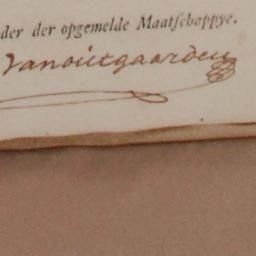 der der opgemelde Maatſchappye.
Vanoutgaarden